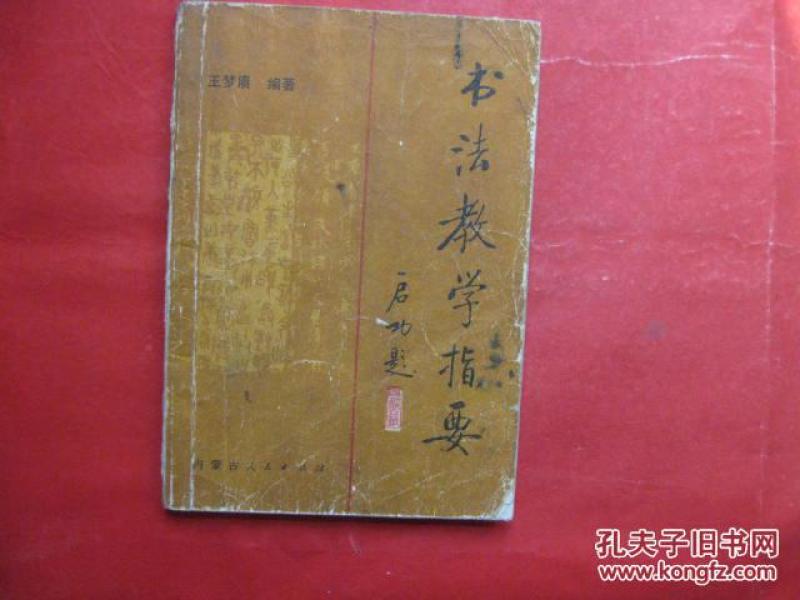 书法教学指要
启功题
王梦赓 编著
内蒙古人民出版社
孔夫子旧书网
www.kongfz.com